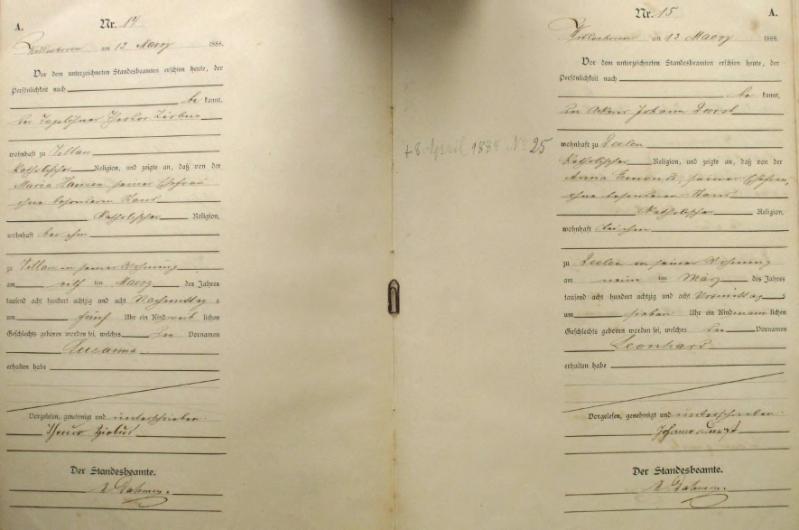 A. Nr. 14
am 12 Maerz 1888.
Vor dem unterzeichneten Standesbeamten erschien heute, der
Persönlichkeit nach
be kannt,
der Tagelöhner
wohnhaft zu
katholischer Religion, und zeigte an, daß von der
Maria seiner Ehefrau
ohne besonderen Stand
katholischer Religion,
wohnhaft bei ihm
zu in seiner Wohnung
am elf ten Maerz des Jahres
tausend acht hundert achtzig und acht Nachmittag s
um fünf Uhr ein Kind weib lichen
Geschlechts geboren worden sei, welches den Vornamen
Susanna
erhalten habe
Vorgelesen, genehmigt und unterschrieben
Der Standesbeamte.
† 8 April 1888 No 25
Nr. 15 A.
am 12 Maerz 1888.
Vor dem unterzeichneten Standesbeamten erschien heute, der
Persönlichkeit nach
be kannt,
der Ackerer Johann
wohnhaft zu
katholischer Religion, und zeigte an, daß von der
Anna seiner Ehefrau,
ohne besonderen Stand
katholischer Religion,
wohnhaft bei ihm
zu in seiner Wohnung
am neun ten März des Jahres
tausend acht hundert achtzig und acht Vormittag s
um sieben Uhr ein Kind maenn lichen
Geschlechts geboren worden sei, welches den Vornamen
Leonhard
erhalten habe
Vorgelesen, genehmigt und unterschrieben
Johann
Der Standesbeamte.